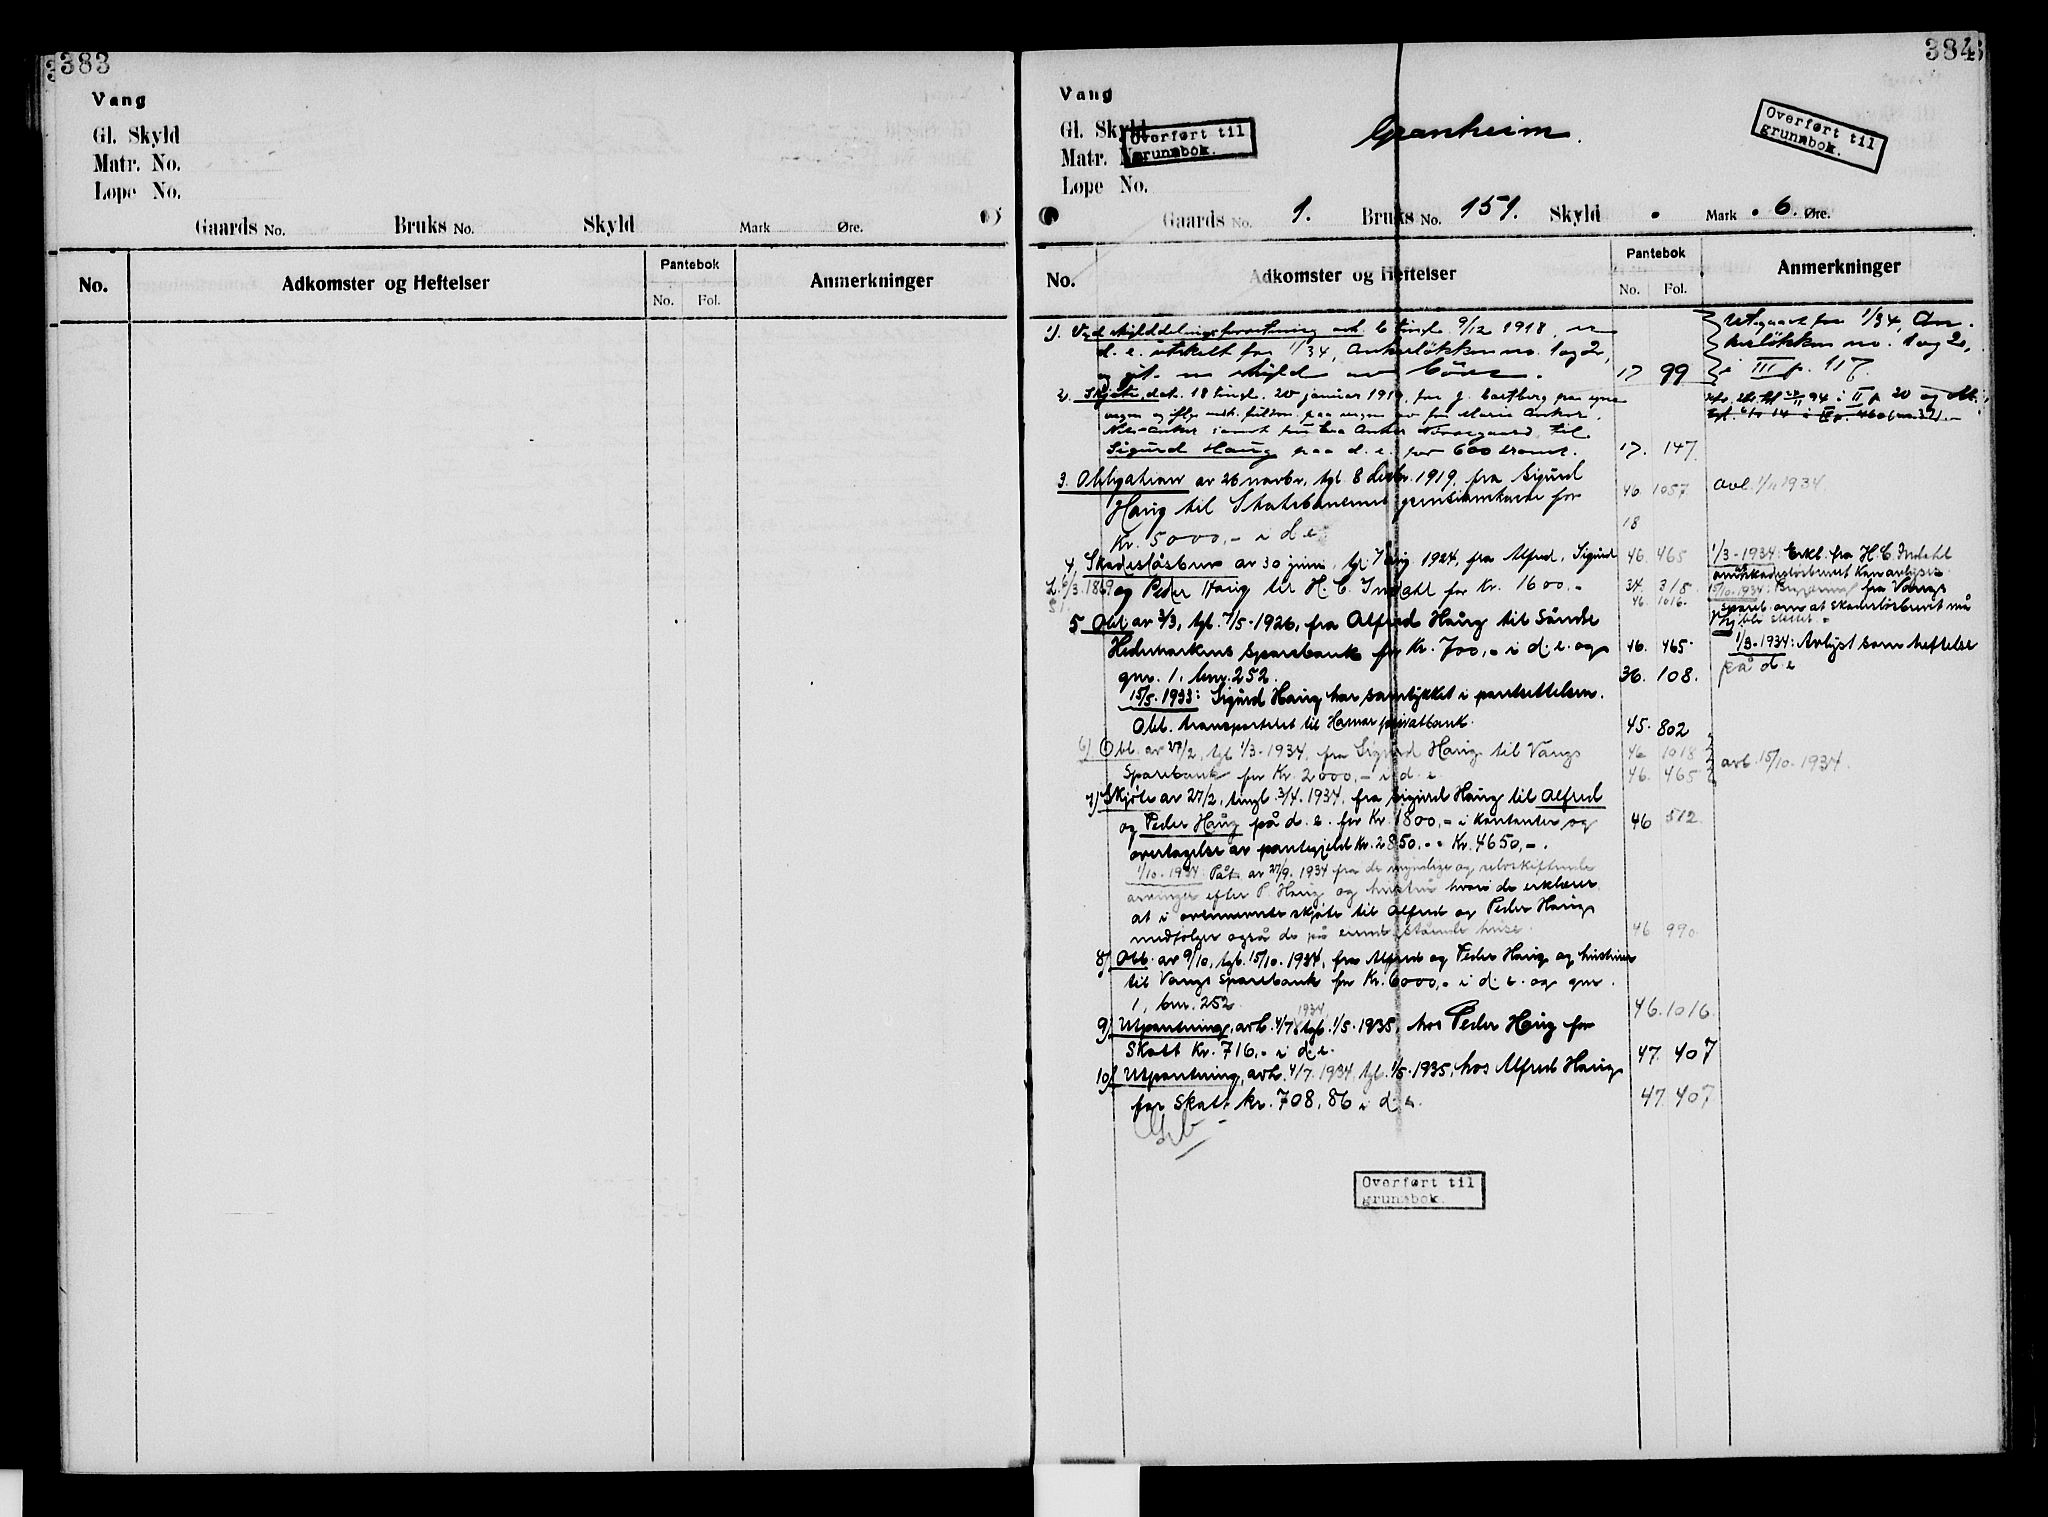 383
Vang
Gl. Skyld
Matr. No.
Løpe No.
Gaards No. Bruks No. Skyld Mark Øre.
No. Adkomster og Heftelser Pantebok No. Fol. Anmerkninger
384
Vang
Gl. Skyld
Overført til
grunnbok.
Granheim.
Overført til
grunnbok.
Matr. No.
Løpe No.
Gaards No. 1. Bruks No. 151. Skyld . Mark . 6. Øre.
No. Adkomster og Heftelser Pantebok No. Fol. Anmerkninger
1). Ved skylddelingsforretning avh. 6 tingl. 9/12 1918, er
d. e. utskilt fra 1/34, Ankerløkken no. 1 og 2,
og git en skyld av 6 øre. 17 99
Utgaaet fra 1/34, An-
kerløkken no. 1 og 2,
i III p. 117.
2. Skjøte, dat. 18 tingl. 20 januar 1919, fra J. Castberg paa egne
vegne og iflg. fuldm. paa vegne av fru Marie Anker,
Nils Anker samt fru Eva Anker til
Sigurd Haug paa d. e. for 600 kroner. 17. 147.
3. Obligation av 26 novbr, tgl. 8 desbr. 1919, fra Sigurd
Haug til Statsbanernes pensionskasse for
Kr. 5000,- i d. e. 46. 1057
18
avl. 1/11 1934
4, Skadesløsbrev av 30 juni, tgl. 7 aug. 1924, fra Alfred, Sigurd 46. 465
og Peder Haug til H. C. Indahl for Kr. 1600.- 34. 315.
46. 1016.
L. 6/3. 1869
§ 1.
1/3 - 1934: Erkl. fra H. C. Indahl
om at skadesløsbrevet kan avlyses.
15/10-1934: fra Vangs
spareb. om at skadesløsbrevet må
bli slettet.
5 Obl. av 3/3, tgl. 7/5-1926, fra Alfred Haug til Søndre
Hedemarkens Sparebank for Kr. 700,- i d. e. og 46. 465.
gnr. 1, bnr. 252. 36. 108.
1/3-1934: Avlyst som heftelse
på d. e
15/5. 1933: Sigurd Haug har samtykket i pantsettelsen.
Obl. transportert til Hamar privatbank. 45. 802
6) Obl. av 27/2, tgl. 1/3-1934, fra Sigurd Haug til Vangs 46 1018
Sparebank for Kr. 2000,- i d. e. 46. 465
avl. 15/10-1934.
7) Skjøte av 27/2, tingl. 3/4. 1934, fra Sigurd Haug til Alfred
og Peder Haug på d. e. for Kr. 1800,- i kontanter og 46 512.
overtagelse av pantegjeld kr. 2850.- = Kr. 4650,-.
1/10. 1934: Påt. av 27/9. 1934 fra de myndige og selvskiftende
arvinger efter P. Haug og hustru hvori de erklærer
at i ovennevnte skjøte til Alfred og Peder Haug
medfølger også de på eiend. stående huse. 46 990.
8) Obl. av 9/10, tgl. 15/10. 1934, fra Alfred og Peder Haug og hustruer
til Vangs Sparebank for Kr. 6000,- i d. e. og gnr.
1, bnr. 252. 46. 1016.
9) Utpantning, avh. 4/7 1934, tgl. 1/5. 1935, hos Peder Haug for
skatt Kr. 716,- i d. e. 47. 407
10) Utpantning, avh. 4/7. 1934, tgl. 1/5. 1935, hos Alfred Haug
for skatt kr. 708,86 i d. e. 47. 407
Overført til
grunnbok.